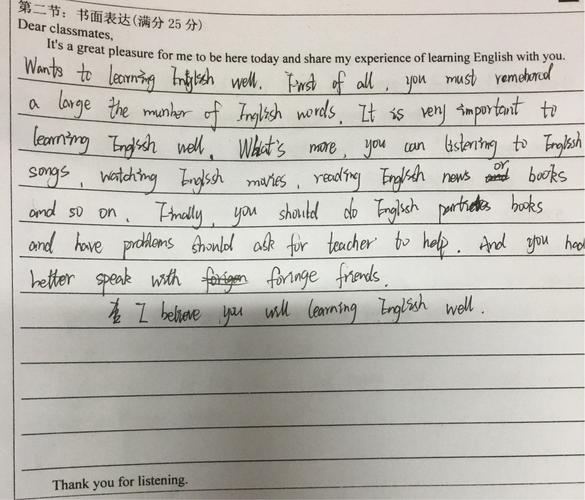 第二节：书面表达(满分 25 分)
Dear classmates,
It's a great pleasure for me to be here today and share my experience of learning English with you.
Wants to learning English well. First of all, you must remebered
a large the munber of English words. It is very important to
learning English well. What's more, you can listening to English
songs, watching English movies, reading English news or books
and so on. Finally, you should do English books
and have problems should ask for teacher to help. And you had
better speak with foringe friends.
I believe you will learning English well.
Thank you for listening.